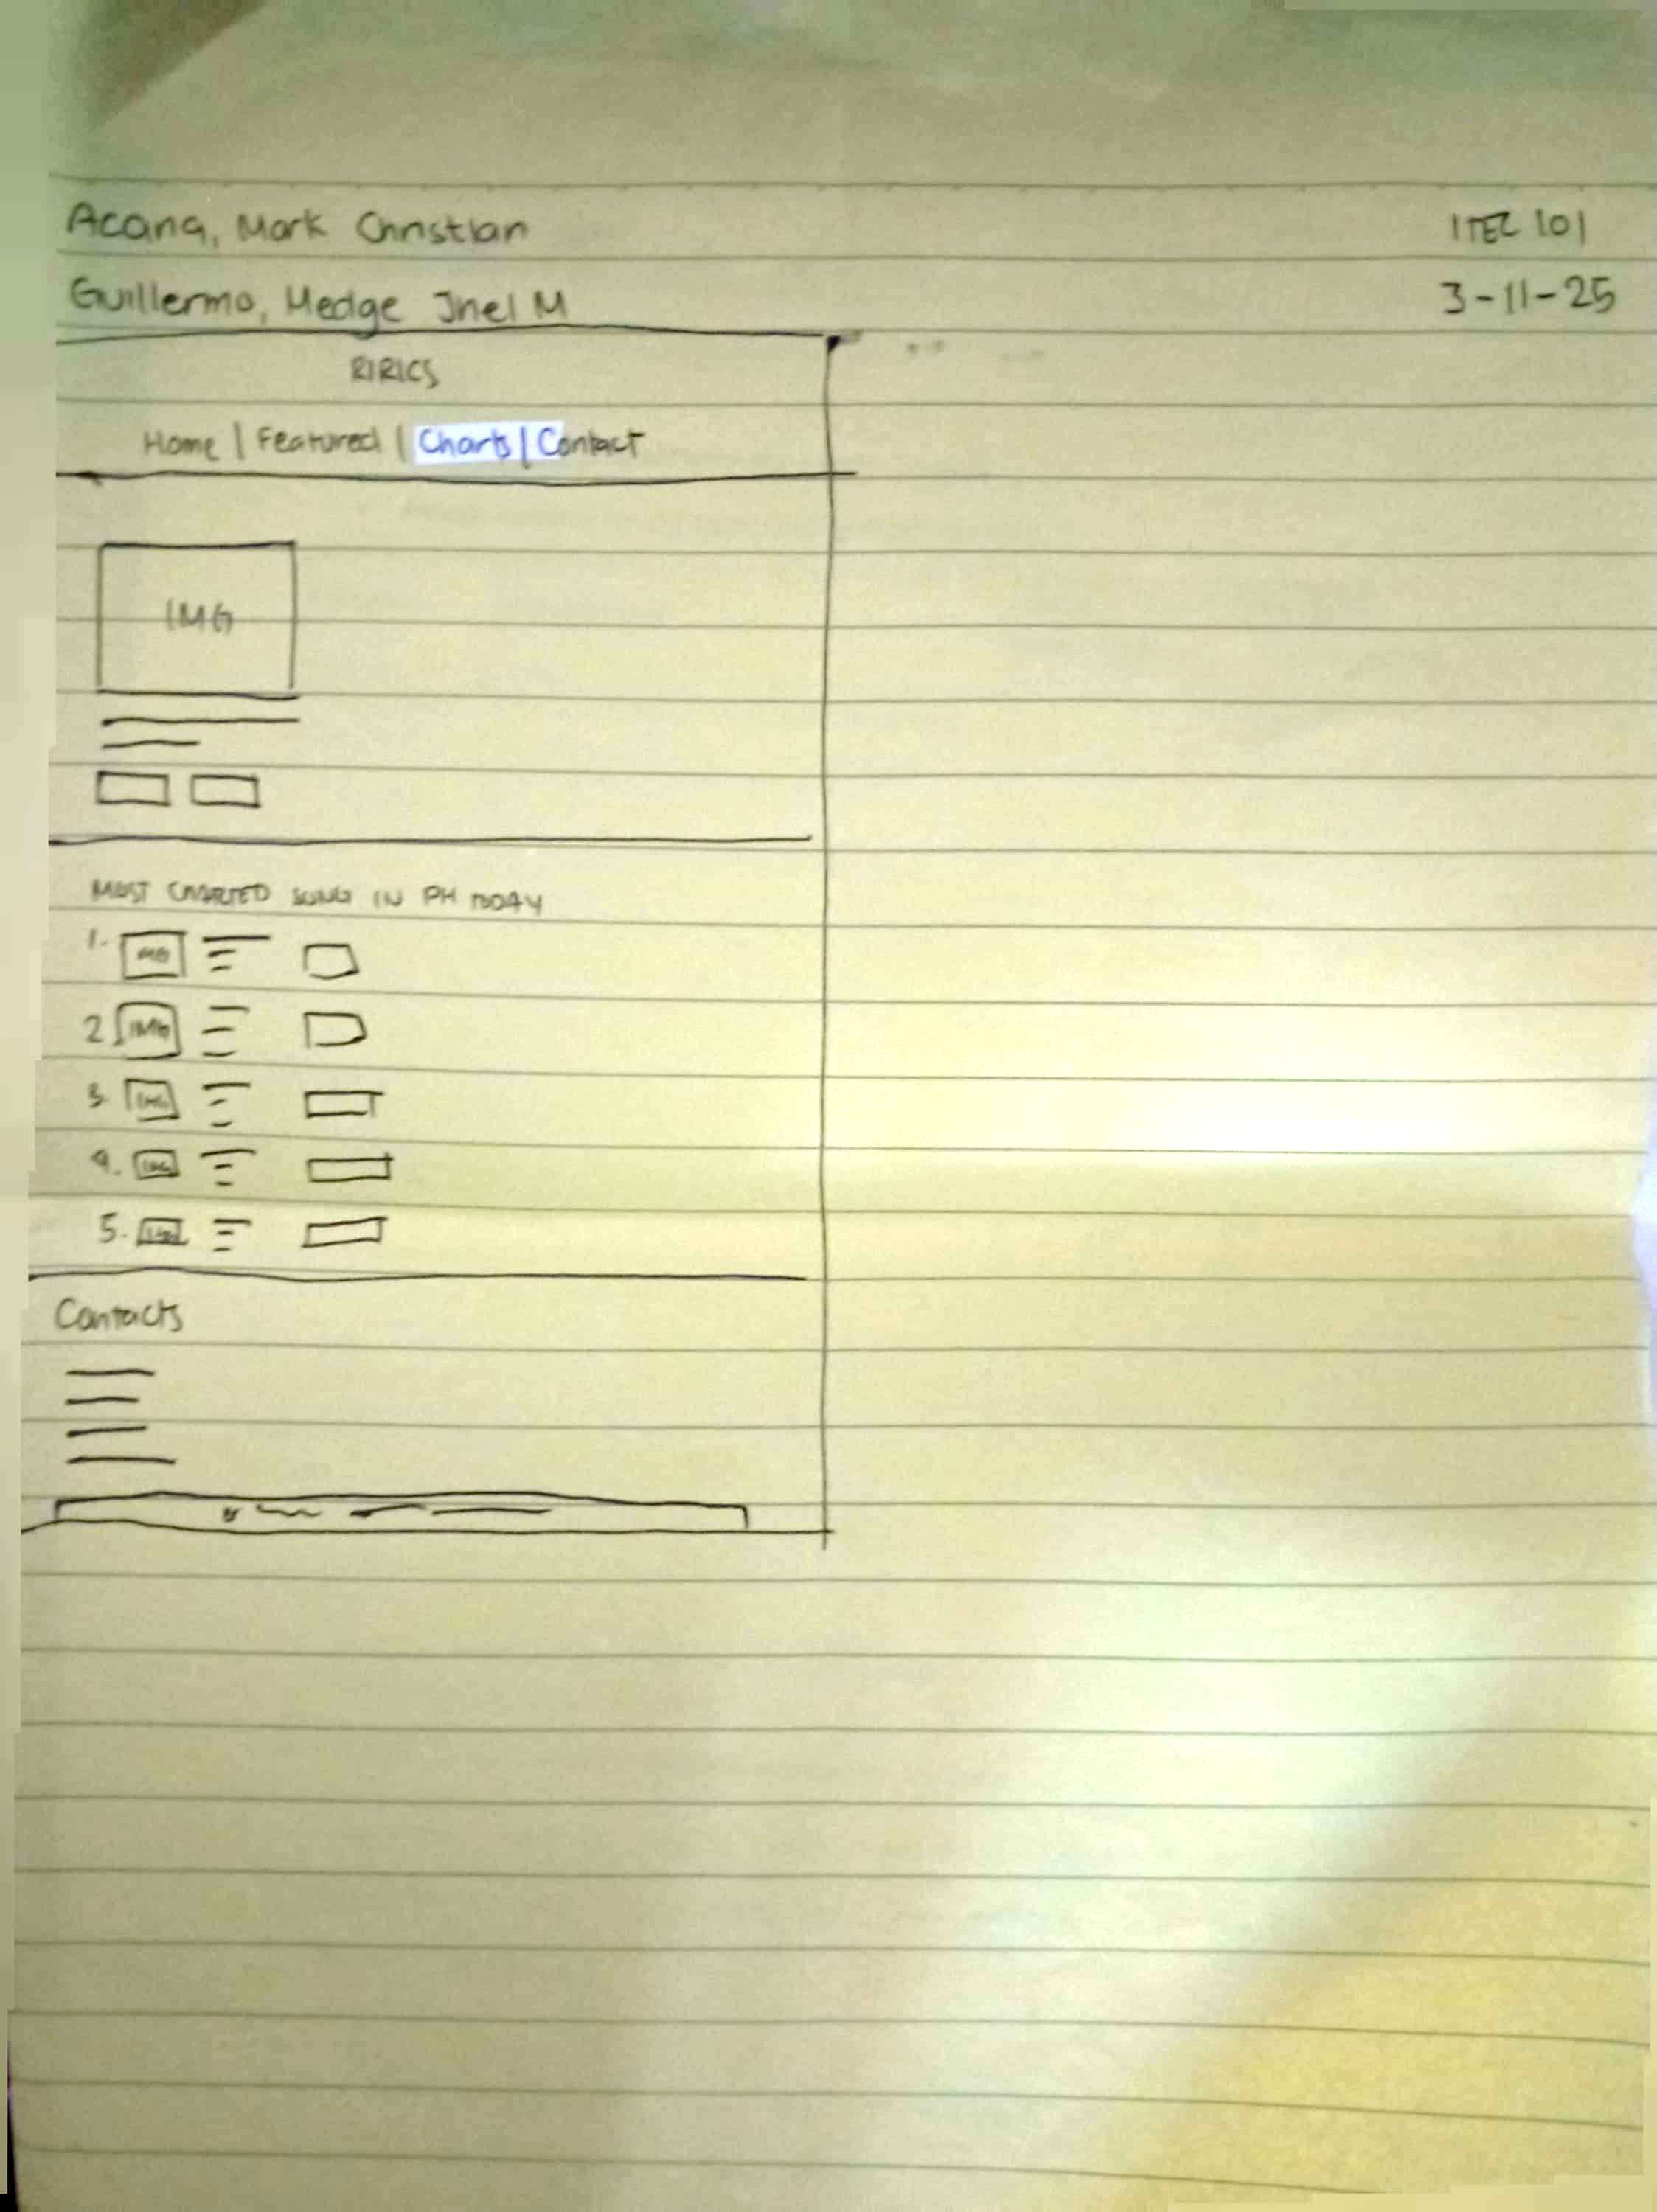 Acana, Mark Christian
ITEC 101
Guillermo, Medge Jnel M
3-11-25
RIRICS
Home | Featured | Charts | Contact
IMG
MOST CHARTED SONG IN PH TODAY
1. IMG
2 IMG
3. IMG
4. IMG
5. IMG
Contacts